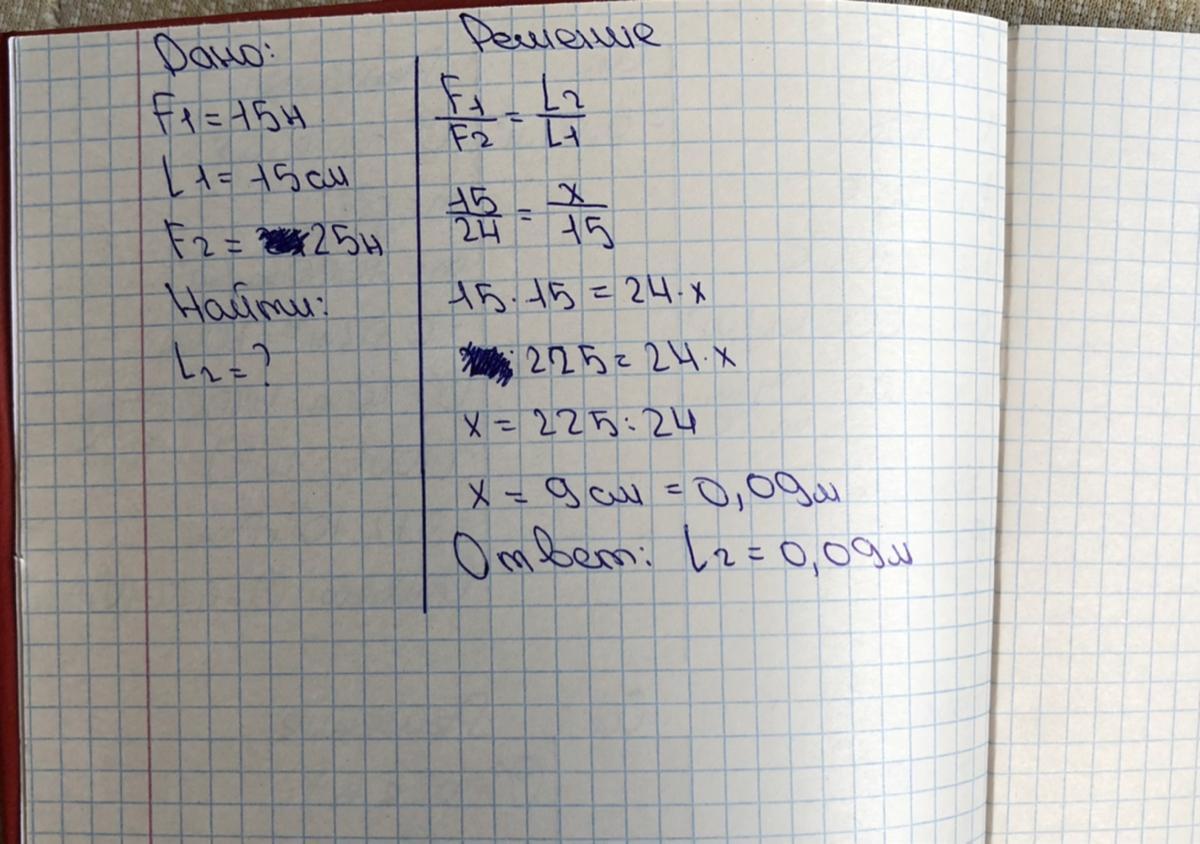 Дано:
F1 = 15н
L1 = 15см
F2 = 25н
Найти:
L2 = ?
Решение
F1/F2 = L2/L1
15/24 = x/15
15 · 15 = 24 · x
225 = 24 · x
x = 225 : 24
x = 9 см = 0,09м
Ответ: L2 = 0,09м